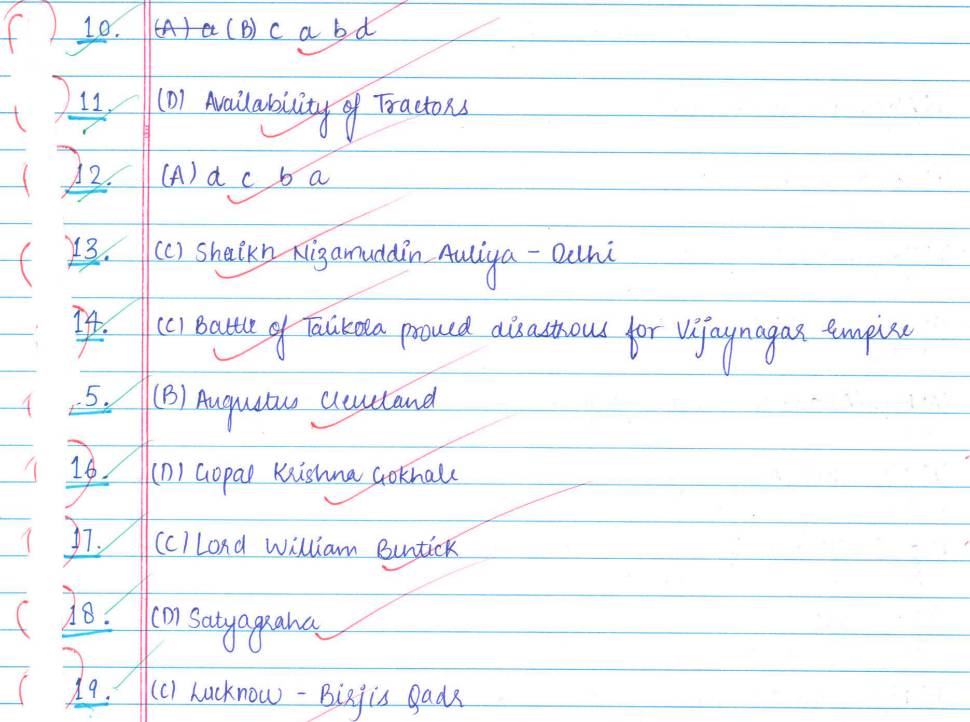 10. (A) a (B) c a b d
11. (D) Availability of Tractors
12. (A) d c b a
13. (C) Shaikh Nizamuddin Auliya - Delhi
14. (C) Battle of Talikota proved disastrous for Vijaynagar Empire
5. (B) Augustus Cleveland
16. (D) Gopal Krishna Gokhale
17. (C) Lord William Bintick
18. (D) Satyagraha
19. (C) Lucknow - Birjis Qadr